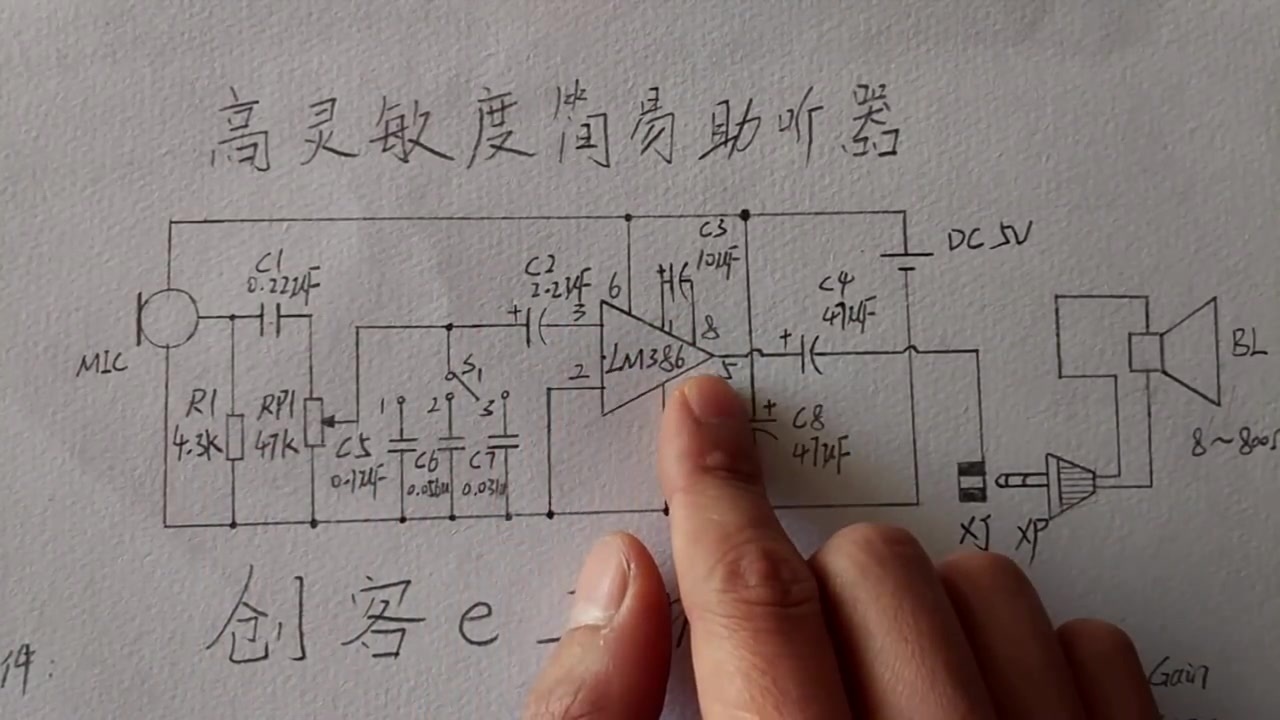 高灵敏度简易助听器
DC 5V
C1
0.22uF
C2
2.2uF
C3
10uF
C4
47uF
MIC
6
3
1
8
LM386
2
5
BL
8~800
R1
4.3K
RP1
47K
S1
1
2
3
C5
0.1uF
C6
C7
C8
47uF
XJ
XP
创客e
件:
Gain